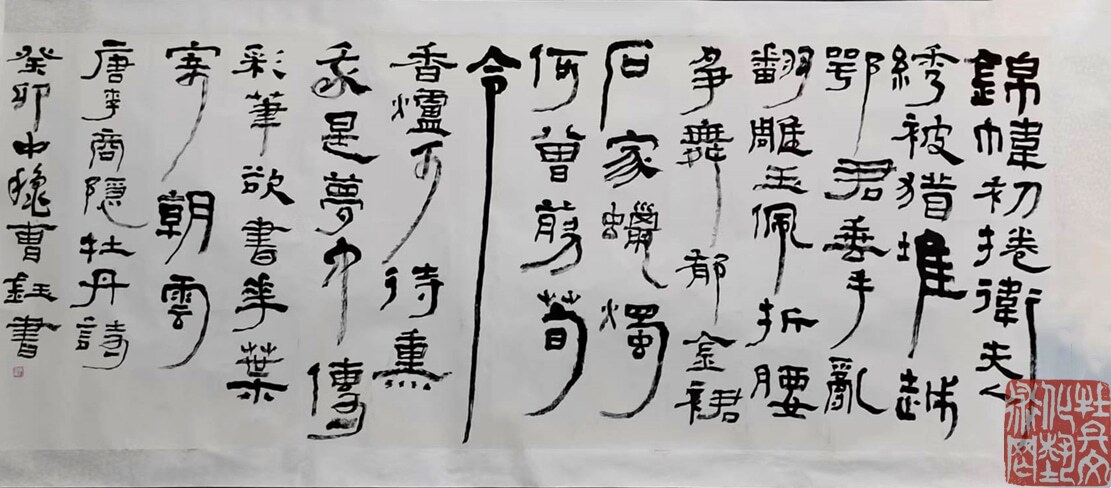 錦幃初捲衛夫人
綉被猶堆越
鄂君垂手亂
翻雕玉佩折腰
爭舞郁金裙
石家蠟燭
何曾剪荀
令
香爐可待熏
我是夢中傳
彩筆欲書華葉
寄朝雲
唐李商隱牡丹詩
癸卯中穐曹鈺書
牡丹文
化藝